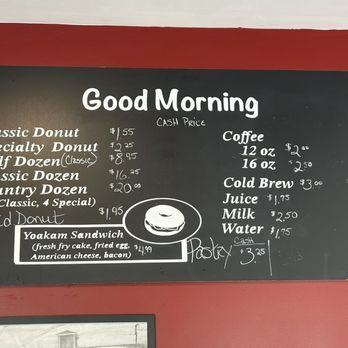 Good Morning
CASH PRICE
assic Donut $1.55
pecialty Donut $2.25
lf Dozen (Classic) $8.95
assic Dozen $16.25
antry Dozen $20.00
Classic, 4 Special)
d Donut $1.95
Yoakam Sandwich
(fresh fry cake, fried egg, $4.99
American cheese, bacon)
Coffee
12 oz $2.00
16 oz $2.50
Cold Brew $3.00
Juice $1.75
Milk $2.50
Water $1.75
CASH
Pastry $3.25